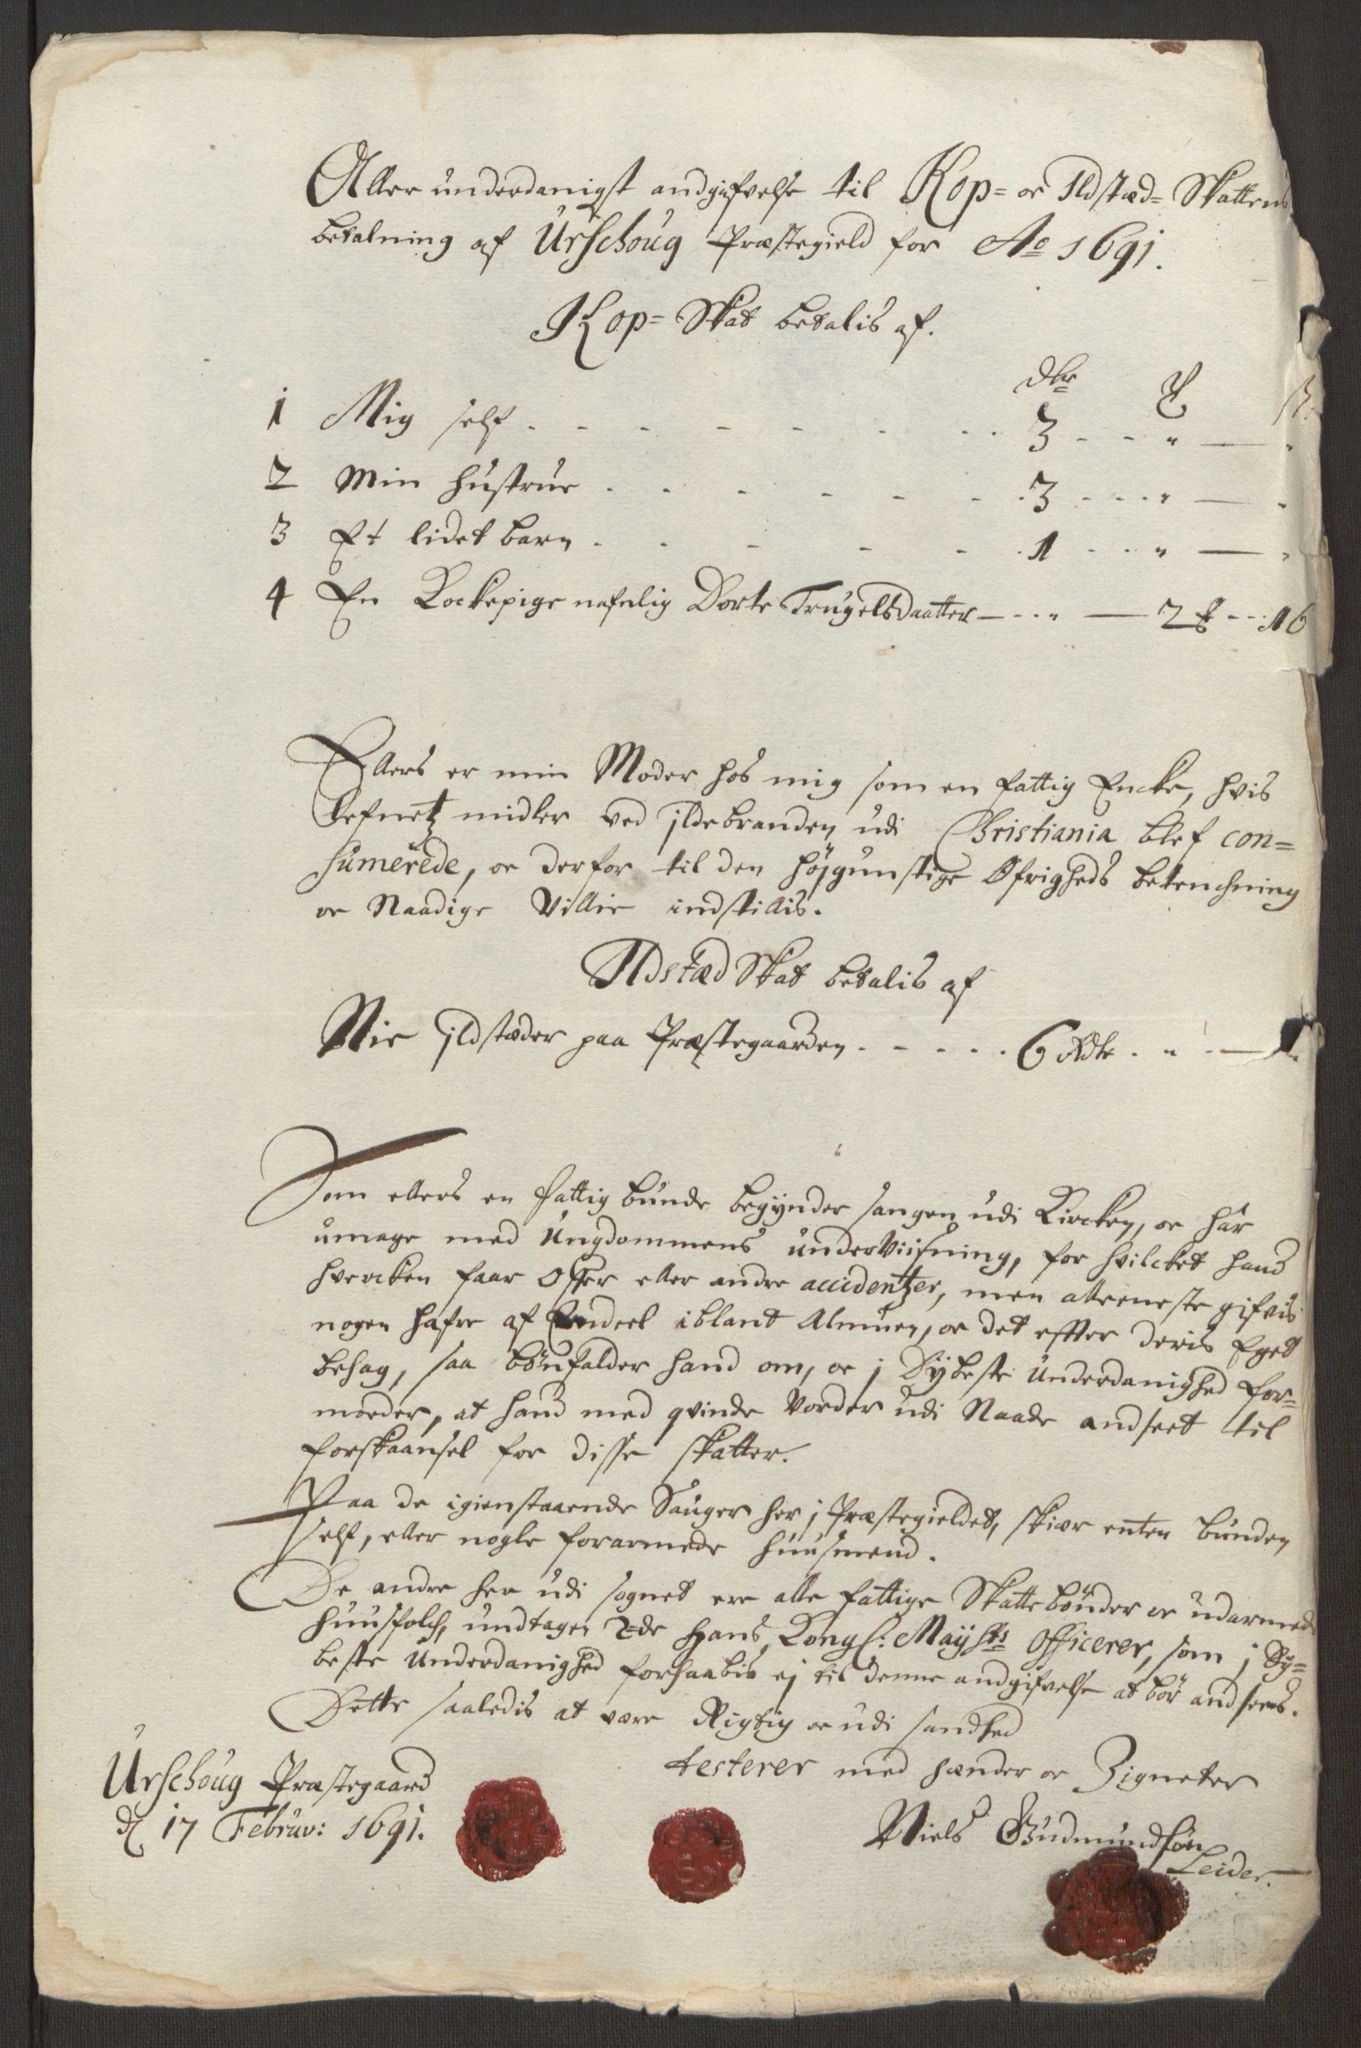 Aller underdanigst andgifvelse til Kop= oc Ildstæd= Skattens
betalning af Urschoug Præstegield for Ao 1691.
Kop= Skat betalis af.
Dlr ß
1 Mig self - - - 3 - - " — "
2 Min hustrue - - - 3 - - " — "
3 Et lidet barn - - - 1 - - " — "
4 En Kockepige nafnlig Dorte Trugelsdaatter — " — 2 - - 16
Ellers er min Moder hos mig som en fattig Encke, hvis
lefnetz midler ved jldebranden udi Christiania blef con=
sumerede, oc derfor til den højgunstige Øfrigheds betenchning
oc Naadige Villie indstillis.
Ildstæd Skat betalis af
Nie jldstæder paa Præstegaarden - - - - - 6 Rdlr - " —
Som ellers en fattig bunde begynder sangen udi Kircken, oc har
umage med Ungdommens underviisning, for hvilcket hans
hvercken faar Offer eller andre accidentzer, men alleeneste gifvis
nogen hafre af Eendeel iblant Almuen, oc det effter deris Eget
behag, saa bønfalder hand om, oc j Dybeste Underdanighed for=
moeder, at hand med qvinde Vorder udi Naade andseet til
forskaansel for disse skatter.
Paa de igienstaaende Sauger her j Præstegieldet, skier enten bunden
self, eller nogle forarmede huusmend.
De andre her udi sognet ere alle fattige Skattebønder oc udarmede
huusfolch, undtagen 2de Hans Kongl: Mayhts Officerer, som j Dy=
beste Underdanighed forhaabis ej til denne andgifvelse at bør andsees.
Dette saaledis at være Rigtig oc udi sandhed
testerer med hænder oc Zigneter
Urschoug Præstegaard
d 17 Februar: 1691.
Niels Gudmundsøn
Leider.